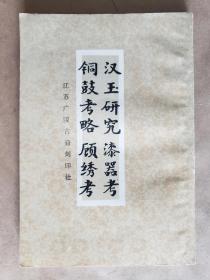 汉玉研究 漆器考
铜鼓考略 顾绣考
江苏广陵古籍刻印社